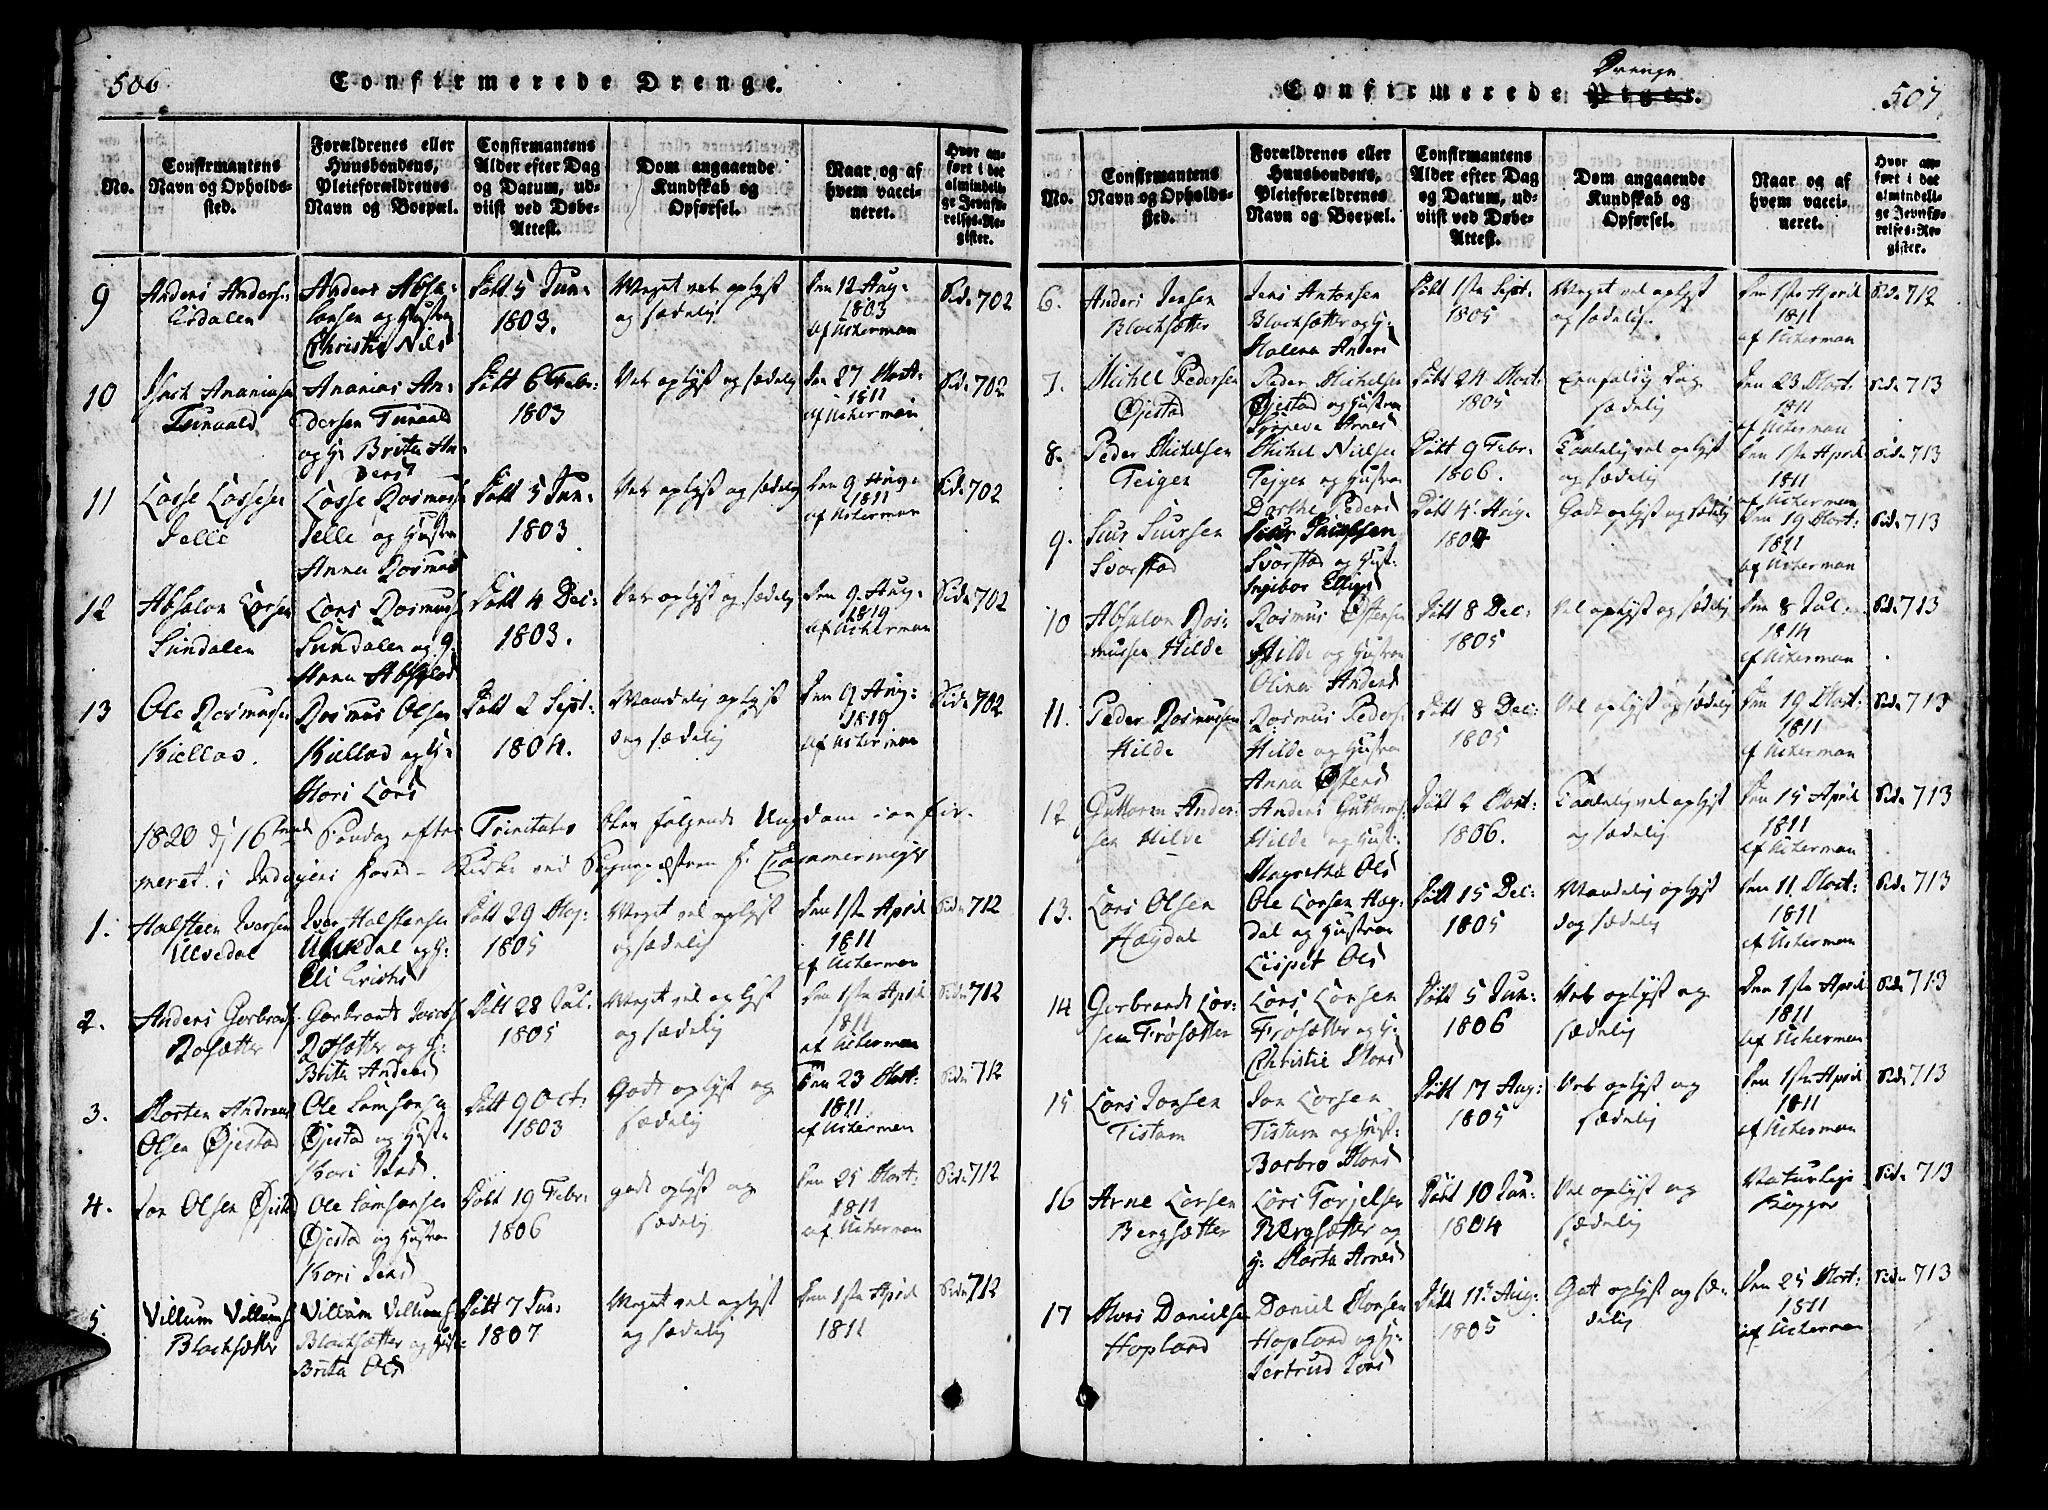 506
Confirmerede Drenge.
No.
Confirmantens
Navn og Opholds-
sted.
Forældrenes eller
Huusbondens,
Pleieforældrenes
Navn og Boepæl.
Confirmantens
Alder efter Dag
og Datum, ud-
viist ved Døbe-
Attest.
Dom angaaende
Kundskab og
Opførsel.
Naar og af
hvem vacci-
neret.
Hvor an-
ført i det
almindeli-
ge Jevnfø-
relses-Re-
gister.
9
Anders Anders:
Anders Absa-
lonsen og Hustru
Christie Nils
Født 5 Jun:
1803.
Meget vel oplyst
og sædelig
Den 12 Aug:
1803
af Ackerman
Sid: 702
10
Isach Ananiasen
Tunvald
Ananias An-
dersen Tunvald
og H: Brita An-
ders
Født 6 Febr:
1803
Vel oplyst og sædelig
Den 27 Mart:
1811
af Ackerman
Sid: 702
11
Lasse Lassesen
Jelle
Lasse Rasmus:
Jelle og Hustru
Anna Rasmus
Født 5 Jun:
1803
Vel oplyst og sædelig
Den 9 Aug:
1811
af Ackerman
Sid: 702
12
Absalon Larsen
Sundalen
Lars Rasmus:
Sundalen og H:
Anna Absalos
Født 4 Dec:
1803.
Vel oplyst og sædelig
Den 9 Aug:
1819
af Ackerman
Sid: 702
13
Ole Rasmussen
Kiellas.
Rasmus Olsen
Kiellas og H:
Mari Lars
Født 2 Sept:
1804.
Maadelig oplyst
dog sædelig
Den 9 Aug:
1819
af Ackerman
Sid: 702
1820 d: 16 Søndag efter Trinitatis blev følgende Ungdom confir-
meret i Indvigens Hoved-Kirke ved Sogne-Præsten H: Cammermejer
1.
Halsteen Iversen
Ulvedal
Iver Halstensen
Ulvedal og H:
Eli Christens
Født 29 Maj:
1805
Meget vel oplyst
og sædelig
Den 1ste April
1811
af Ackerman
Sid: 712
2.
Anders Gerbrads:
Rosætter
Gerbrant Jacobs:
Rosætter og H:
Brita Anders
Født 28 Jul:
1805
Meget vel oplyst
og sædelig
Den 1ste April
1811
af Ackerman
Sid: 712
3.
Morten Andreas
Olsen Øjestad
Ole Samsonsen
Øjestad og Hust:
Kari Jens
Født 9 Oct:
1803
Godt oplyst og
sædelig
Den 23 Mart:
1811.
af Ackerman
Sid: 712
4.
Jan Olsen Øjestad
Ole Samsonsen
Øjestad og Hustru
Kari Jens
Født 19 Febr:
1806
godt oplyst og
sædelig
Den 25 Mart:
1811
af Ackerman
Sid: 712
5.
Villum Villums:
Blachsætter
Villum Villums:
Blachsætter og Hust:
Brita Ols
Født 7 Jun:
1807
Meget vel oplyst
og sædelig
Den 1ste April
1811
Sid: 712
Drenge
Confirmerede Piger.
507
No.
Confirmantens
Navn og Opholds-
sted.
Forældrenes eller
Huusbondens,
Pleieforældrenes
Navn og Boepæl.
Confirmantens
Alder efter Dag
og Datum, ud-
viist ved Døbe-
Attest.
Dom angaaende
Kundskab og
Opførsel.
Naar og af
hvem vacci-
neret.
Hvor an-
ført i det
almindeli-
ge Jevnfø-
relses-Re-
gister.
6.
Anders Jensen
Blachsætter
Jens Antonsen
Blachsætter og H:
Malena Anders
Født 1ste Sept:
1805
Meget vel oplyst
og sædelig.
Den 1ste April
1811
af Ackerman
Sid: 712
7.
Michel Pedersen
Øjestad
Peder Michelsen
Øjestad og Hustru
Sørneva Arnes
Født 24 Mart:
1805
Eenfoldig dog
sædelig
Den 23 Mart:
1811
af Ackerman
Sid: 713
8.
Peder Michelsen
Teigen
Michel Nielsen
Tejgen og Hustru
Dorthe Peders
Født 9 Febr:
1806.
Taalelig vel oplyst
og sædelig
Den 1ste April
1811
af Ackerman
Sid: 713
9.
Siur Siursen
Svarstad
Siur Jacobsen
Svarstad og Hust:
Ingebor Ellings
Født 4 Aug:
1804
Godt oplyst og sædelig
Den 19 Mart:
1811
af Ackerman
Sid: 713
10
Absalon Ras-
mussen Hilde
Rasmus Østensen
Hilde og Hustru
Olina Anders
Født 8 Dec:
1805
Vel oplyst og sædelig
Den 8 Jul:
1814
af Ackerman
Sid: 713
11.
Peder Rasmussen
Hilde
Rasmus Peders:
Hilde og Hustru
Anna Østens
Født 8 Dec:
1805
Vel oplyst og sædelig
Den 19 Mart:
1811
af Ackerman
Sid: 713
12
Guttorm Ander-
sen Hilde
Anders Guttorms:
Hilde og Hust:
Magretha Ols
Født 2 Mart:
1806.
Taalelig vel oplyst
og sædelig
Den 15 April
1811
af Ackerman
Sid: 713
13.
Lars Olsen
Haugdal
Ole Larsen Haug-
dal og Hustru
Lispet Ols
Født 15 Dec:
1805
Maadelig oplyst
dog sædelig
Den 11 Mart:
1811
af Ackerman
Sid: 713
14
Gerbrandt Lar-
sen Frøsætter
Lars Larsen
Frøsætter og H:
Christie Mons
Født 5 Jun:
1806
Vel oplyst og
sædelig
Den 1ste April
1811
af Ackerman
Sid: 713
15
Lars Jansen
Tistam
Jan Larsen
Tistam og Hust:
Barbro Mons
Født 17 Aug:
1805
Vel oplyst og
sædelig
Den 1ste April
1811
af Ackerman
Sid: 713
16
Arne Larsen
Bergsætter
Lars Torjelsen
Bergsætter og
H: Marta Arnes
Født 10 Jun:
1804
Vel oplyst og
sædelig
Naturlige
Kopper
Sid: 713
17
Mons Danielsen
Hopland
Daniel Monsen
Hopland og H:
Jertrud Lars
Født 11 Aug:
1805
Got oplyst og sæ-
delig
Den 25 Mart:
1811
af Ackerman
Sid: 713